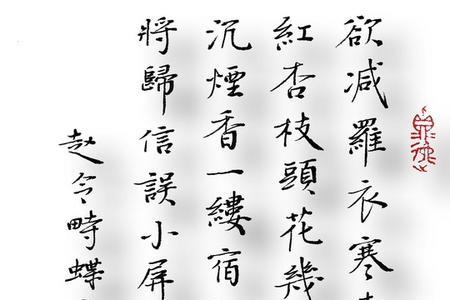 欲减羅衣寒
紅杏枝頭花幾
沉煙香一縷宿
將歸信誤小屏
赵令畤蝶